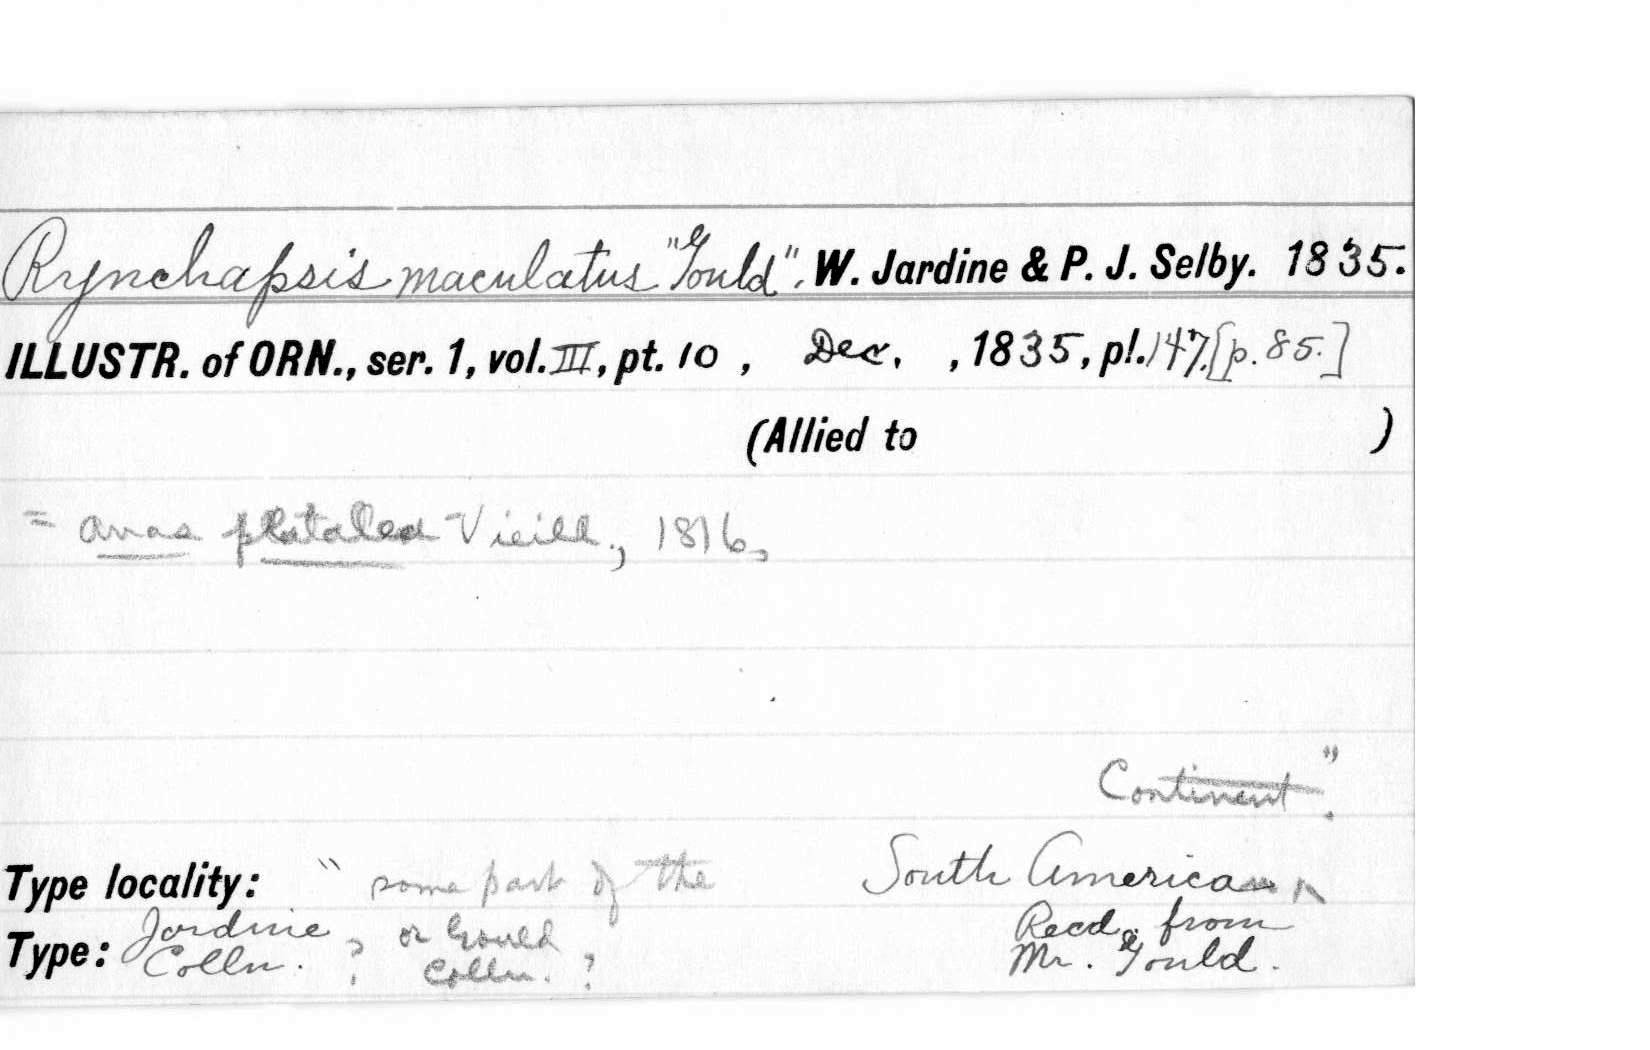 Rynchapsis maculatus "Gould". W. Jardine & P. J. Selby. 1835.
ILLUSTR. of ORN., ser. 1, vol. III, pt. 10, Dec., 1835, pl. 147. [p. 85.]
(Allied to )
= Anas platalea Vieill., 1816,
Continent".
Type locality: "some part of the South American ^
Type: Jardine Colln. ? or Gould Colln. ? Recd. from Mr. Gould.